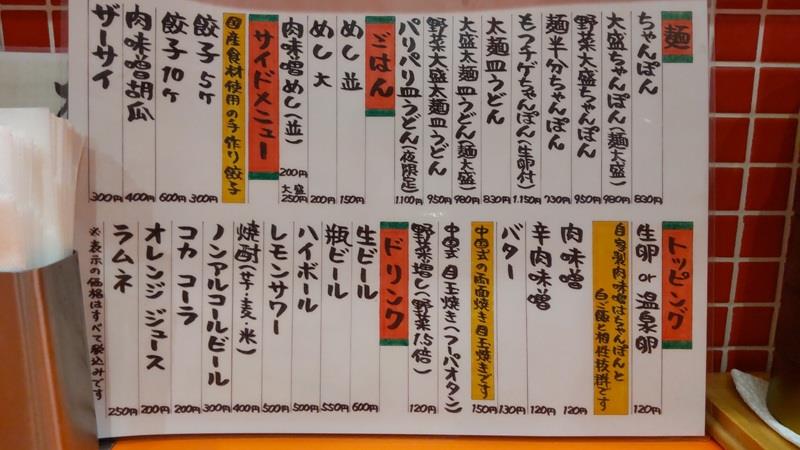 麺
ちゃんぽん 830円
大盛ちゃんぽん(麺大盛) 980円
野菜大盛ちゃんぽん 950円
麺半分ちゃんぽん 730円
もつチゲちゃんぽん(生卵付) 1.150円
太麺皿うどん 830円
大盛太麺皿うどん(麺大盛) 980円
野菜大盛太麺皿うどん 950円
パリパリ皿うどん(夜限定) 1.100円
ごはん
めし 並 150円
めし 大 200円
肉味噌めし(並) 200円 大盛 250円
サイドメニュー
国産食材使用の手作り餃子
餃子 5ヶ 300円
餃子 10ヶ 600円
肉味噌胡瓜 400円
ザーサイ 300円
トッピング
生卵 or 温泉卵 120円
自家製肉味噌はちゃんぽんと
白ご飯と相性抜群です
肉味噌 120円
辛肉味噌 120円
バター 130円
中国式の両面焼き目玉焼きです
中国式 目玉焼き(フーバオタン) 150円
野菜増し(野菜1.5倍) 120円
ドリンク
生ビール 600円
瓶ビール 550円
ハイボール 500円
レモンサワー 500円
焼酎(芋・麦・米) 400円
ノンアルコールビール 300円
コカ コーラ 200円
オレンジ ジュース 200円
ラムネ 250円
※表示の価格はすべて税込みです